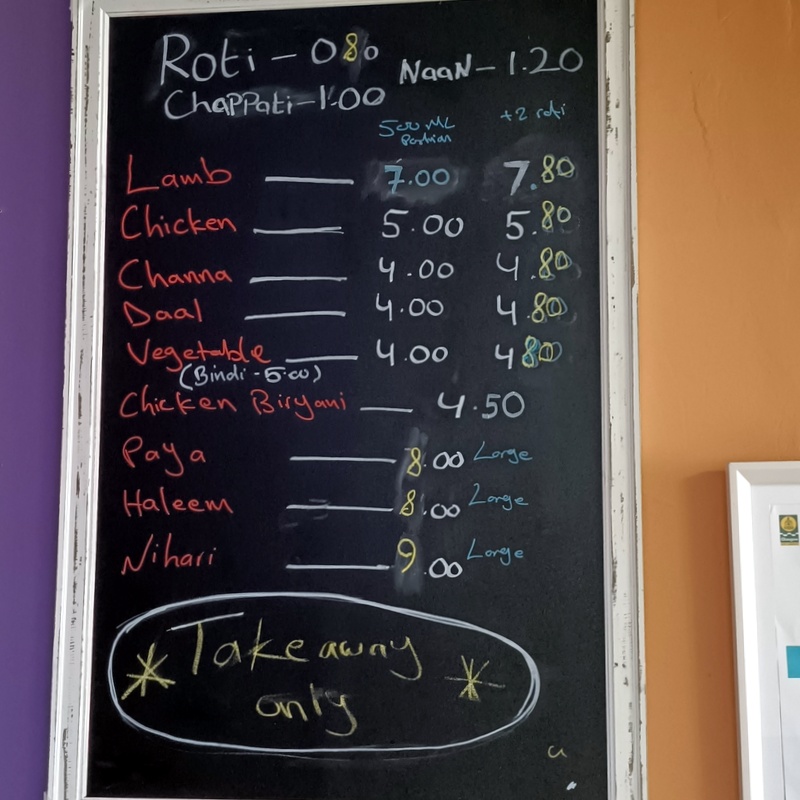 Roti - 0 80 Naan - 1.20
Chappati - 1.00
500 ML Portion +2 roti
Lamb — 7.00 7.80
Chicken — 5.00 5.80
Channa — 4.00 4.80
Daal — 4.00 4.80
Vegetable — 4.00 4 80
(Bindi - 5.00)
Chicken Biryani — 4.50
Paya — 8.00 Large
Haleem — 8.00 Large
Nihari — 9.00 Large
* Takeaway
only *